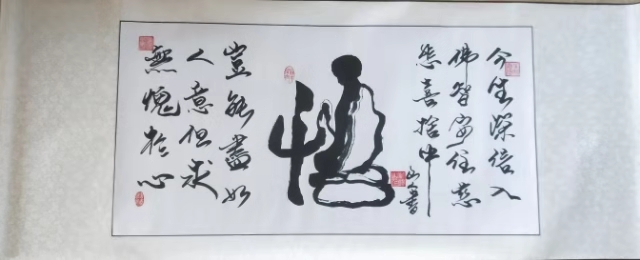 今生深信入
佛智安住慈
悲喜捨中
悟
豈能盡如
人意但求
無愧於心